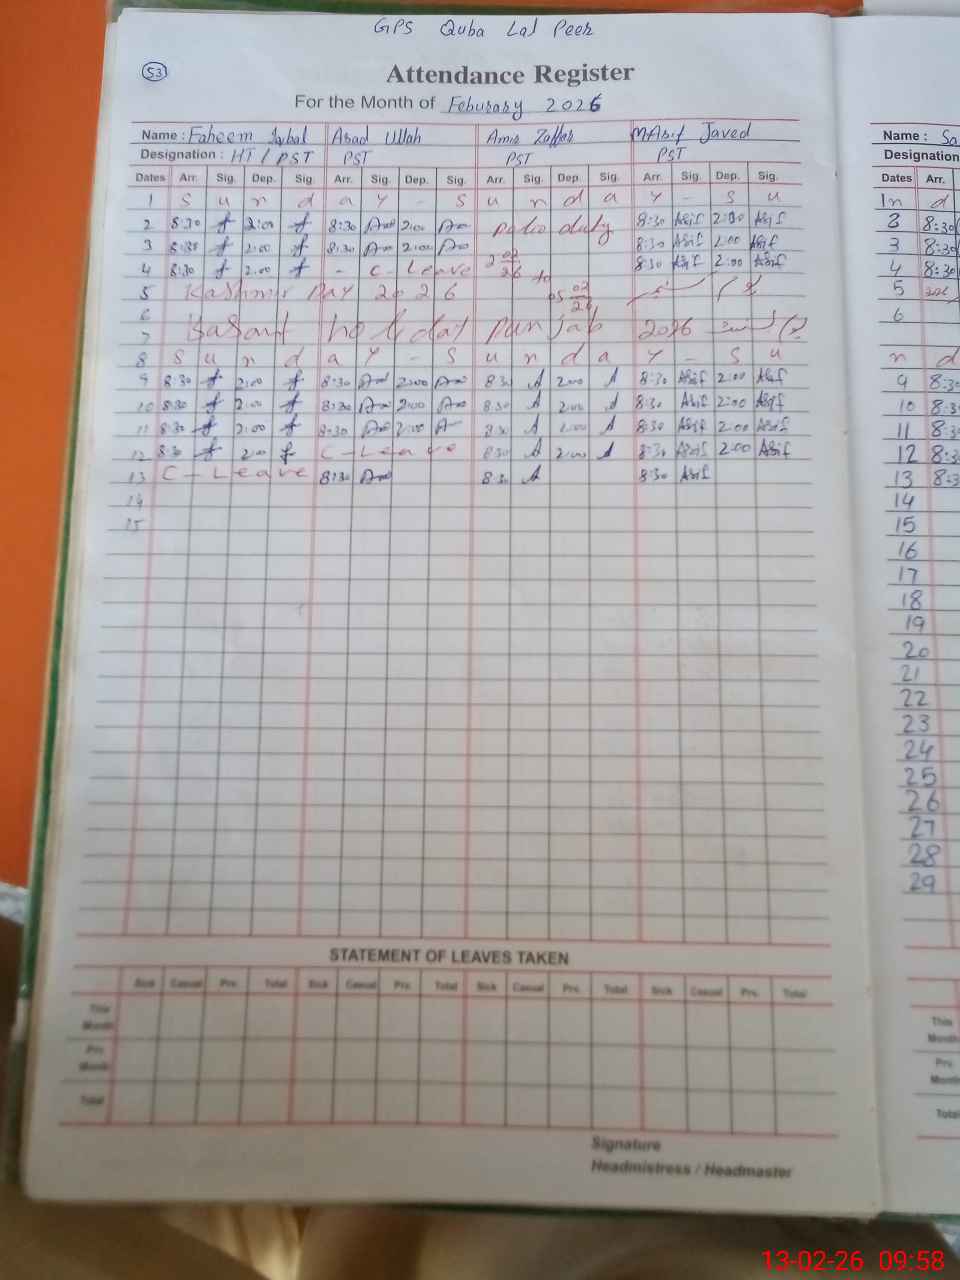 GPS Quba Lal Peer
53
Attendance Register
For the Month of Feburary 2026
Name : Faheem Iqbal Asad Ullah Amir Zaffar M Asif Javed Name : Sa
Designation : HT / PST PST PST PST Designation
Dates Arr. Sig. Dep. Sig. Arr. Sig. Dep. Sig. Arr. Sig. Dep. Sig. Arr. Sig. Dep. Sig. Dates Arr.
1 S u n d a y - S u n d a y - S u n d
2 8:30 2:00 8:30 2:00 Polio duty 8:30 Asif 2:00 Asif 8:30
3 8:30 2:00 8:30 2:00 8:30 Asif 2:00 Asif 3 8:30
4 8:30 2:00 - C - Leave 2 02/26 to 8:30 Asif 2:00 Asif 4 8:30
5 Kashmir Day 2026 05 02/26 5
6 6
7 Basant holiday Punjab 2026
8 S u n d a y - S u n d a y - S u n d
9 8:30 2:00 8:30 2:00 8:30 2:00 8:30 Asif 2:00 Asif 9 8:30
10 8:30 2:00 8:30 2:00 8:30 2:00 8:30 Asif 2:00 Asif 10 8:3
11 8:30 2:00 8:30 2:00 8:30 2:00 8:30 Asif 2:00 Asif 11 8:3
12 8:30 2:00 C - Leave 8:30 2:00 8:30 Asif 2:00 Asif 12 8:3
13 C - Leave 8:30 8:30 8:30 Asif 13 8:3
14 14
15 15
16
17
18
19
20
21
22
23
24
25
26
27
28
29
STATEMENT OF LEAVES TAKEN
Sick Casual Prv. Total Sick Casual Prv. Total Sick Casual Prv. Total Sick Casual Prv. Total
This Month This Month
Prv. Month Prv. Month
Total Total
Signature
Headmistress / Headmaster
13-02-26 09:58